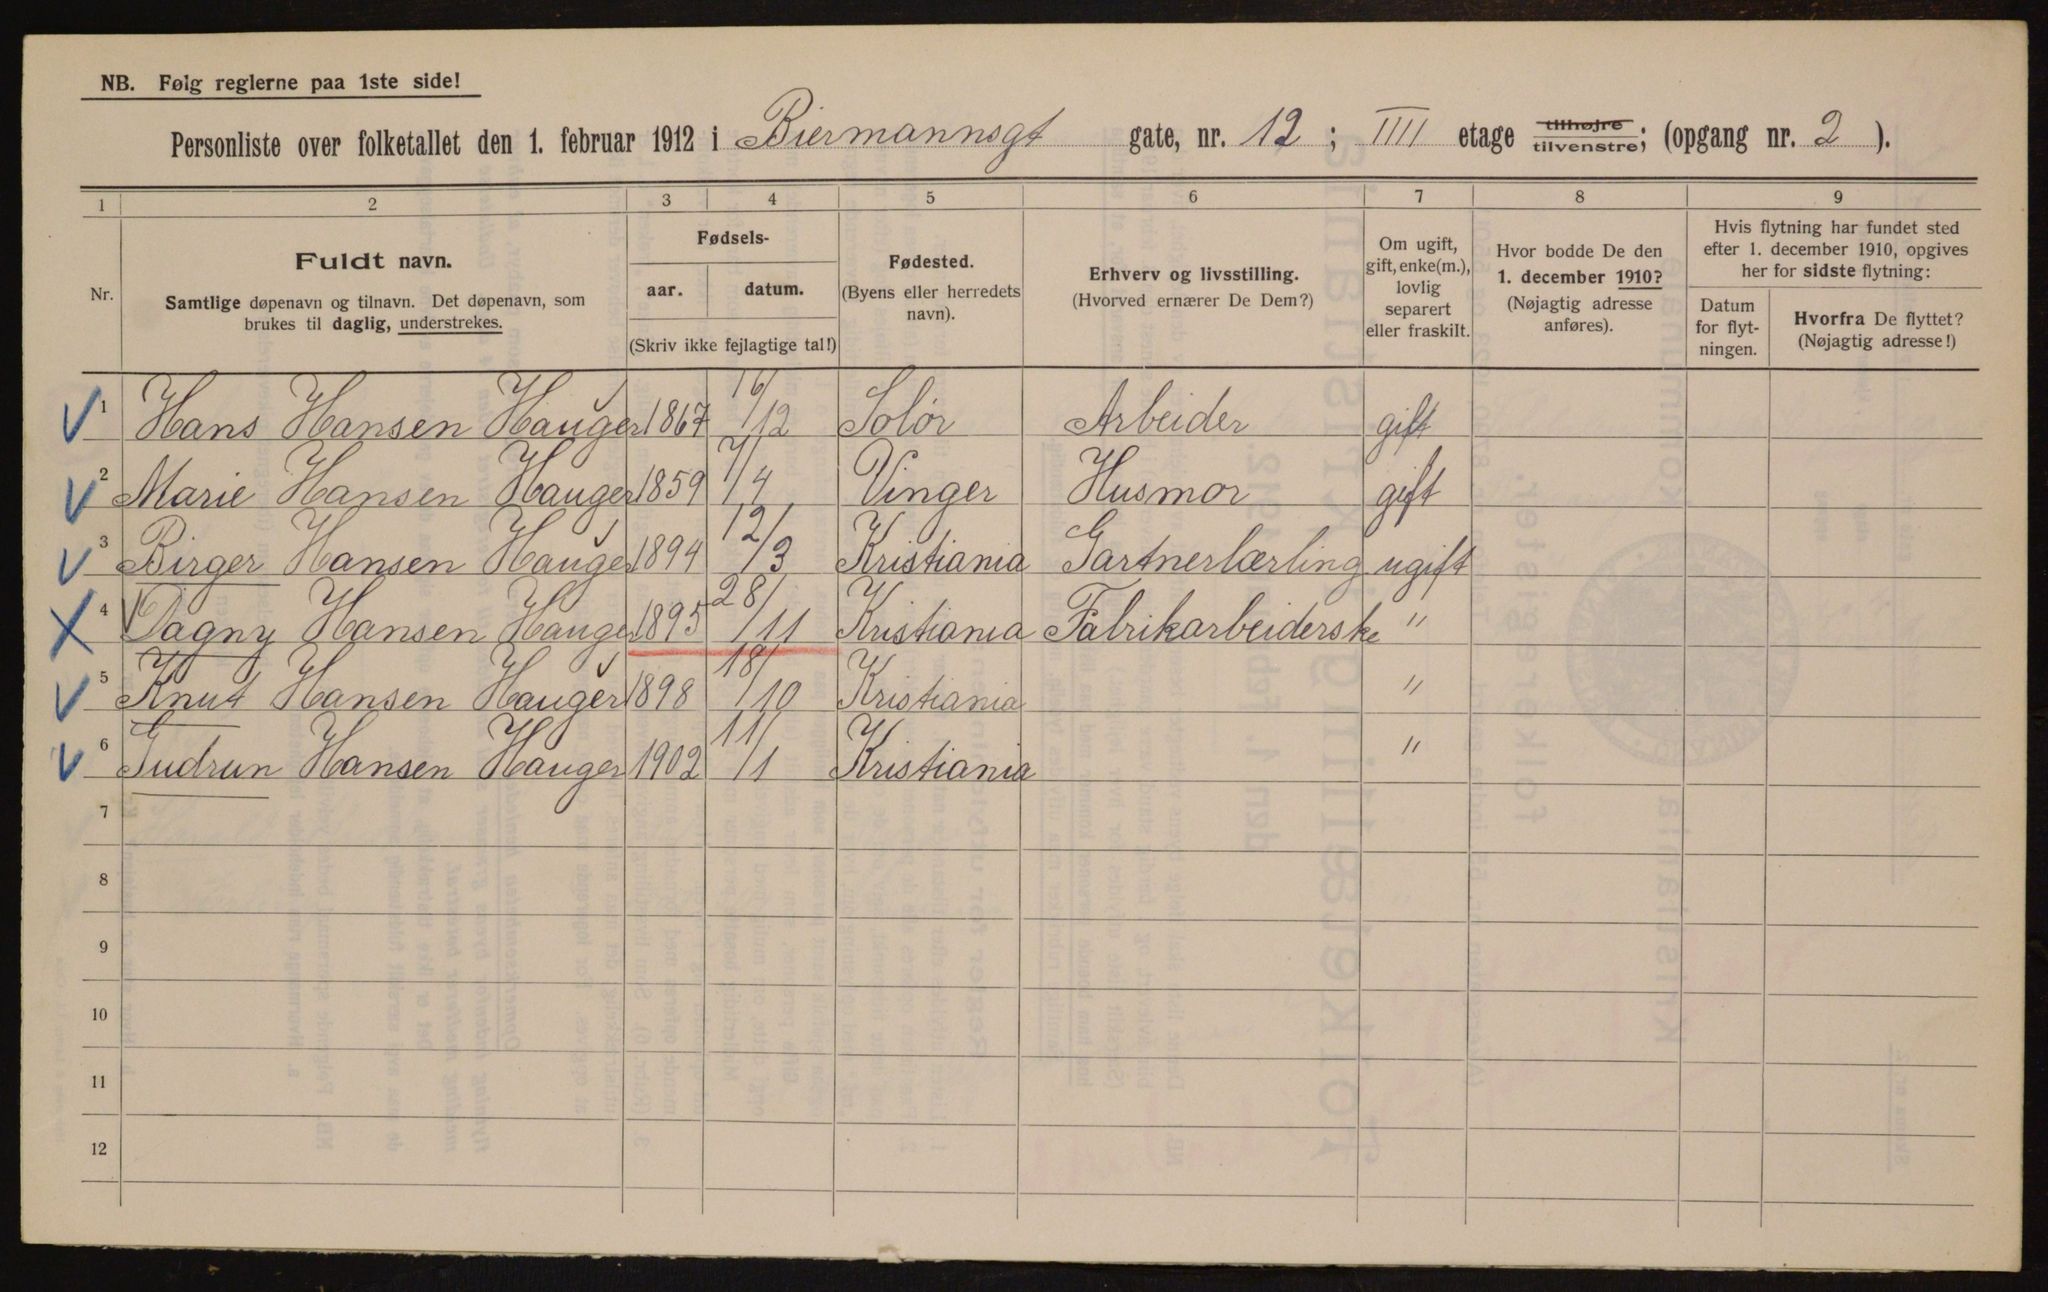 NB. Følg reglerne paa 1ste side!
Personliste over folketallet den 1. februar 1912 i Biermannsgt gate, nr. 12 ; IIII etage tilhøjre tilvenstre; (opgang nr. 2 ).
1 2 3 4 5 6 7 8 9
Nr.
Fuldt navn.
Samtlige døpenavn og tilnavn. Det døpenavn, som
brukes til daglig, understrekes.
Fødsels-
aar. datum.
(Skriv ikke fejlagtige tal!)
Fødested.
(Byens eller herredets
navn).
Erhverv og livsstilling.
(Hvorved ernærer De Dem?)
Om ugift,
gift, enke(m.),
lovlig
separert
eller fraskilt.
Hvor bodde De den
1. december 1910?
(Nøjagtig adresse
anføres).
Hvis flytning har fundet sted
efter 1. december 1910, opgives
her for sidste flytning:
Datum
for flyt-
ningen.
Hvorfra De flyttet?
(Nøjagtig adresse!)
1 Hans Hansen Hauger 1867 16/12 Solør Arbeider gift
2 Marie Hansen Hauger 1859 7/4 Vinger Husmor gift
3 Birger Hansen Hauger 1894 12/3 Kristiania Gartnerlærling ugift
4 Dagny Hansen Hauger 1895 28/11 Kristiania Fabrikarbeiderske "
5 Knut Hansen Hauger 1898 18/10 Kristiania "
6 Gudrun Hansen Hauger 1902 11/1 Kristiania "
7
8
9
10
11
12